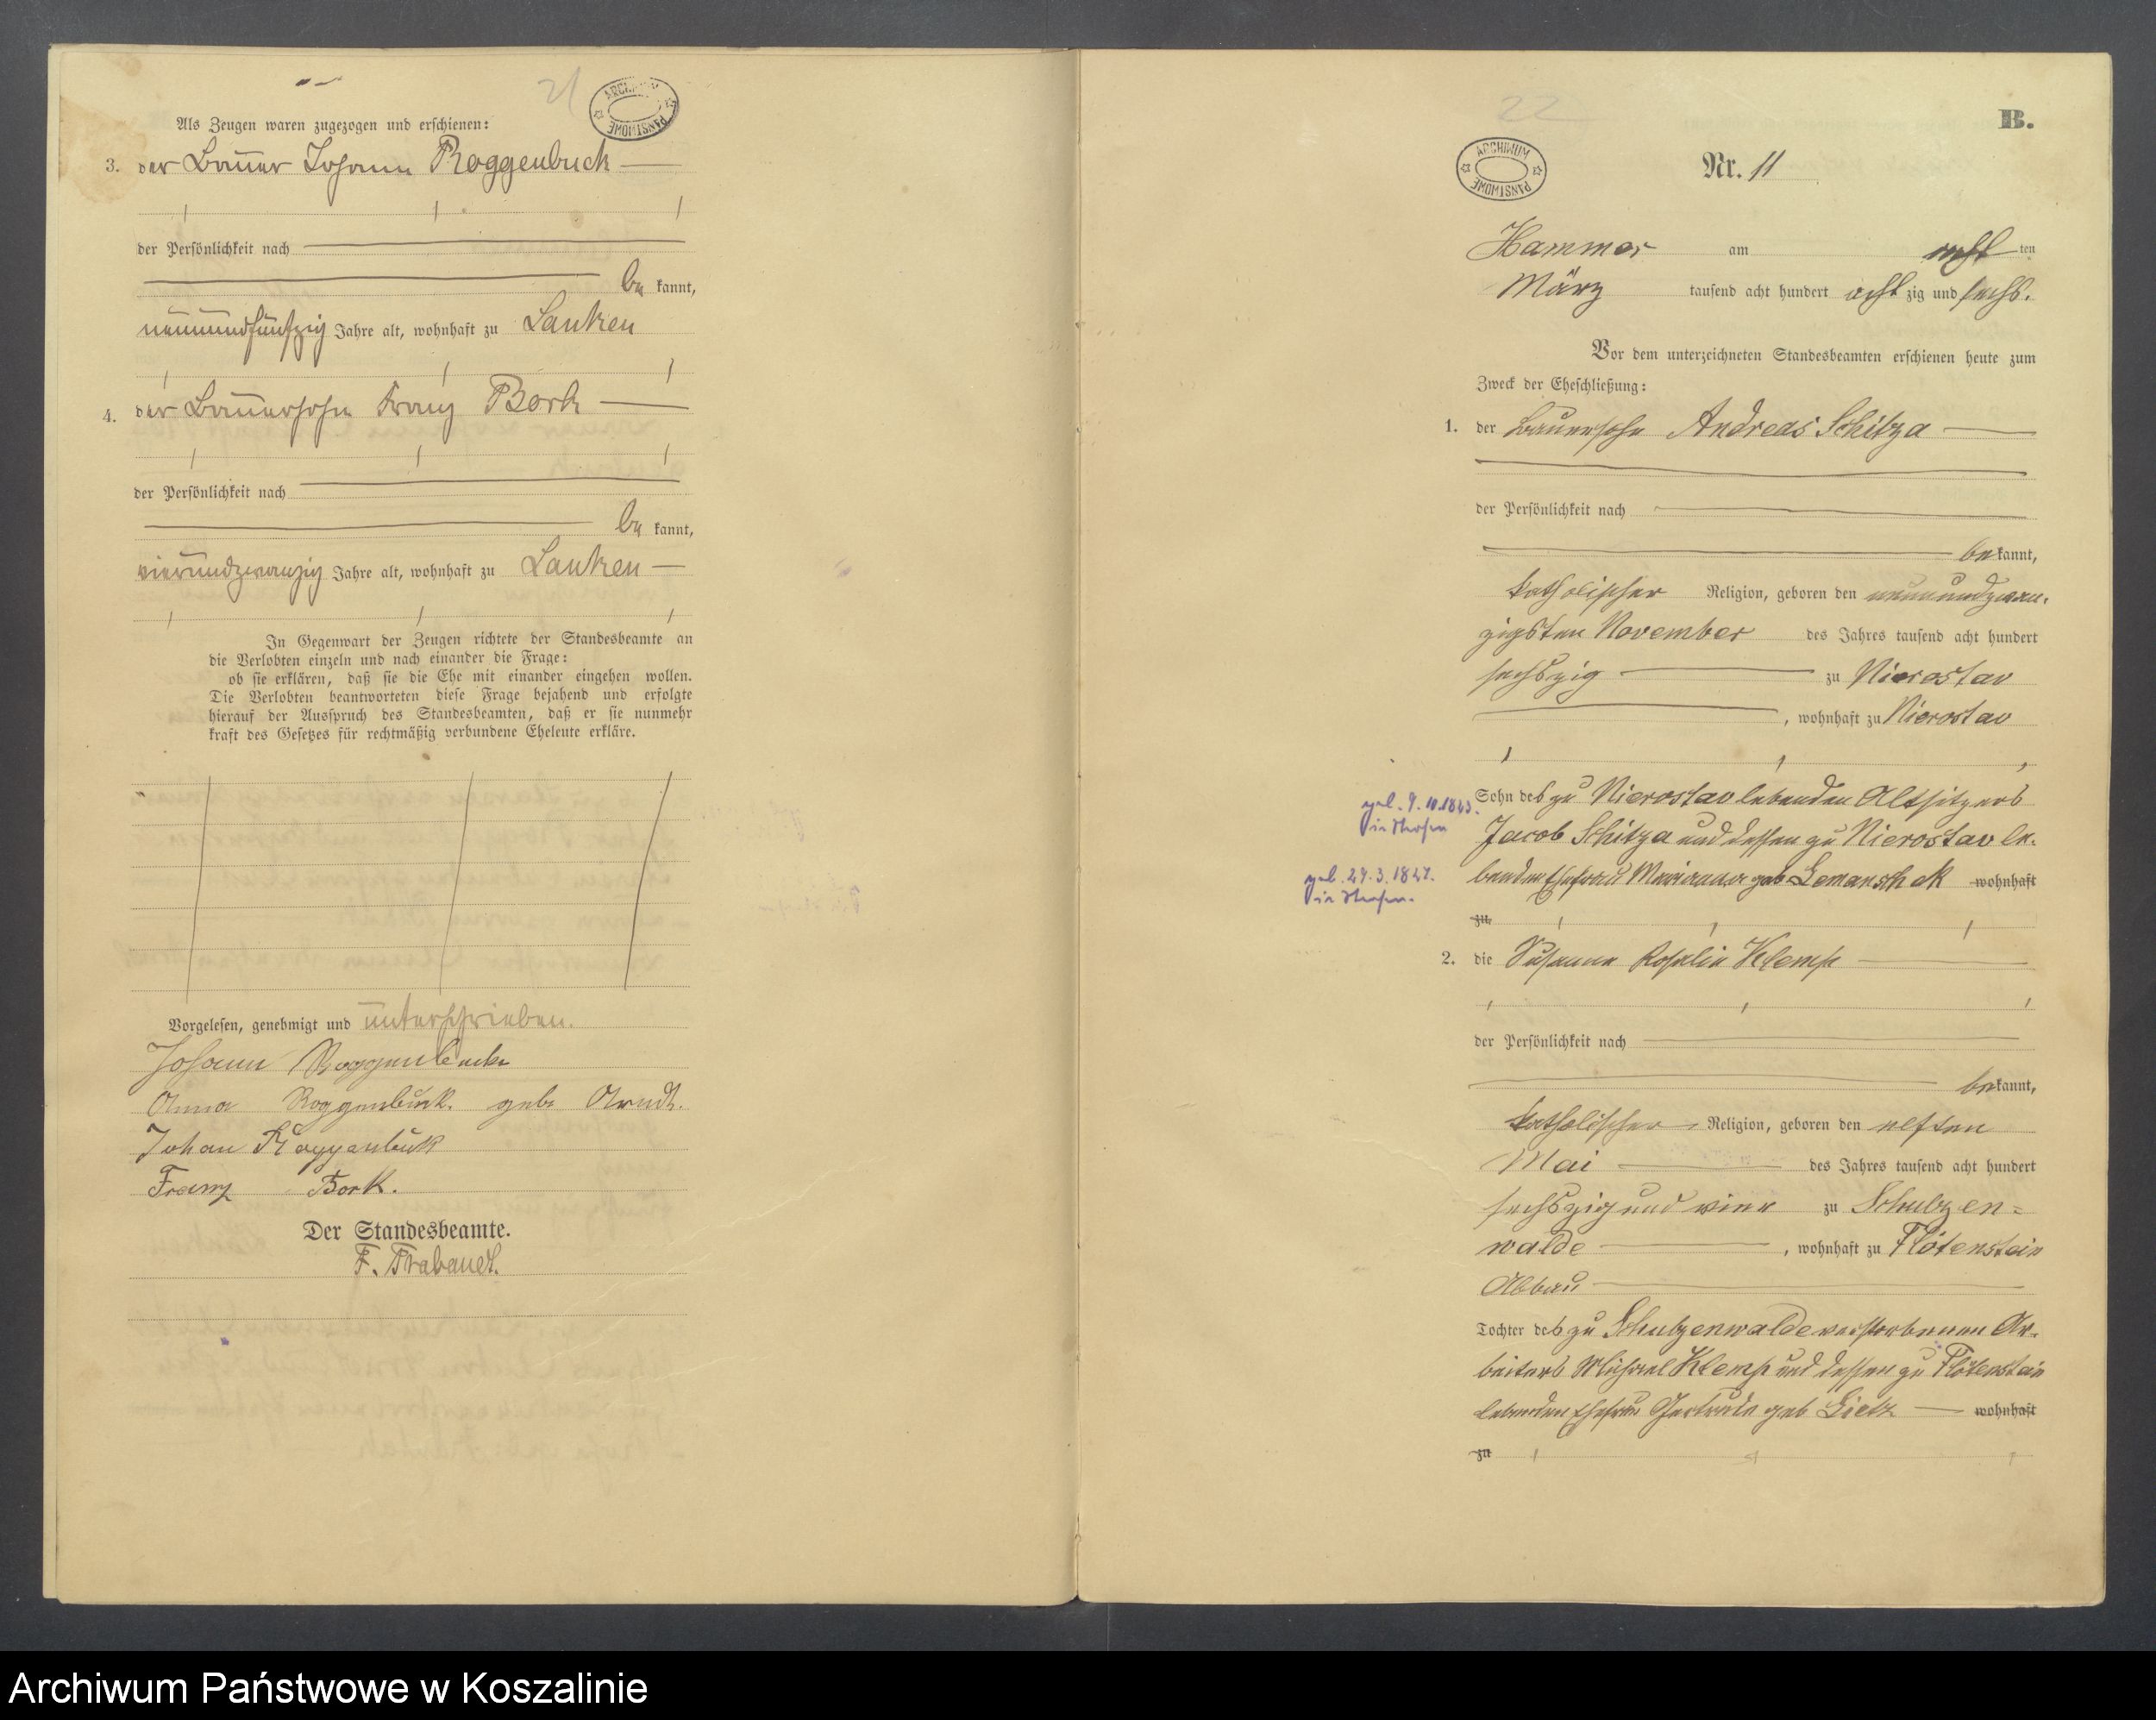 21
ARCHIWUM PAŃSTWOWE
Als Zeugen waren zugezogen und erschienen:
3. der Bauer Johann Roggenbuck
der Persönlichkeit nach
be kannt,
neunundfünfzig Jahre alt, wohnhaft zu Lanken
4. der Bauersohn Franz Bork
der Persönlichkeit nach
be kannt,
vierundzwanzig Jahre alt, wohnhaft zu Lanken
In Gegenwart der Zeugen richtete der Standesbeamte an
die Verlobten einzeln und nach einander die Frage:
ob sie erklären, daß sie die Ehe mit einander eingehen wollen.
Die Verlobten beantworteten diese Frage bejahend und erfolgte
hierauf der Ausspruch des Standesbeamten, daß er sie nunmehr
kraft des Gesetzes für rechtmäßig verbundene Eheleute erkläre.
Vorgelesen, genehmigt und unterschrieben.
Johann Roggenbuck
Anna Roggenbuck. geb. Arndt.
Johan Roggenbuck
Franz Bork.
Der Standesbeamte.
22
B.
ARCHIWUM PAŃSTWOWE
Nr. 11
Hammer am acht ten
März tausend acht hundert acht zig und sechs.
Vor dem unterzeichneten Standesbeamten erschienen heute zum
Zweck der Eheschließung:
1. der Bauersohn Andreas Schitza
der Persönlichkeit nach
be kannt,
katholischer Religion, geboren den neunundzwan-
zigsten November des Jahres tausend acht hundert
sechszig zu Nierostaw
, wohnhaft zu Nierostaw
geb. 9. 10. 1823.
Sohn des zu Nierostaw lebenden Altsitzers
Jacob Schitza und dessen zu Nierostaw le-
geb. 29. 3. 1827.
benden Ehefrau Marianna geb. wohnhaft
zu
2. die Susanna Rosalia Klemp
der Persönlichkeit nach
be kannt,
katholischer Religion, geboren den elften
Mai des Jahres tausend acht hundert
sechszig und vier zu Schulzen-
walde , wohnhaft zu Flötenstein
Abbau
Tochter des zu Schulzenwalde verstorbenen Ar-
beiters Michael Klemp und dessen zu Flötenstein
lebenden Ehefrau Gertrude geb Lietz wohnhaft
zu
Archiwum Państwowe w Koszalinie